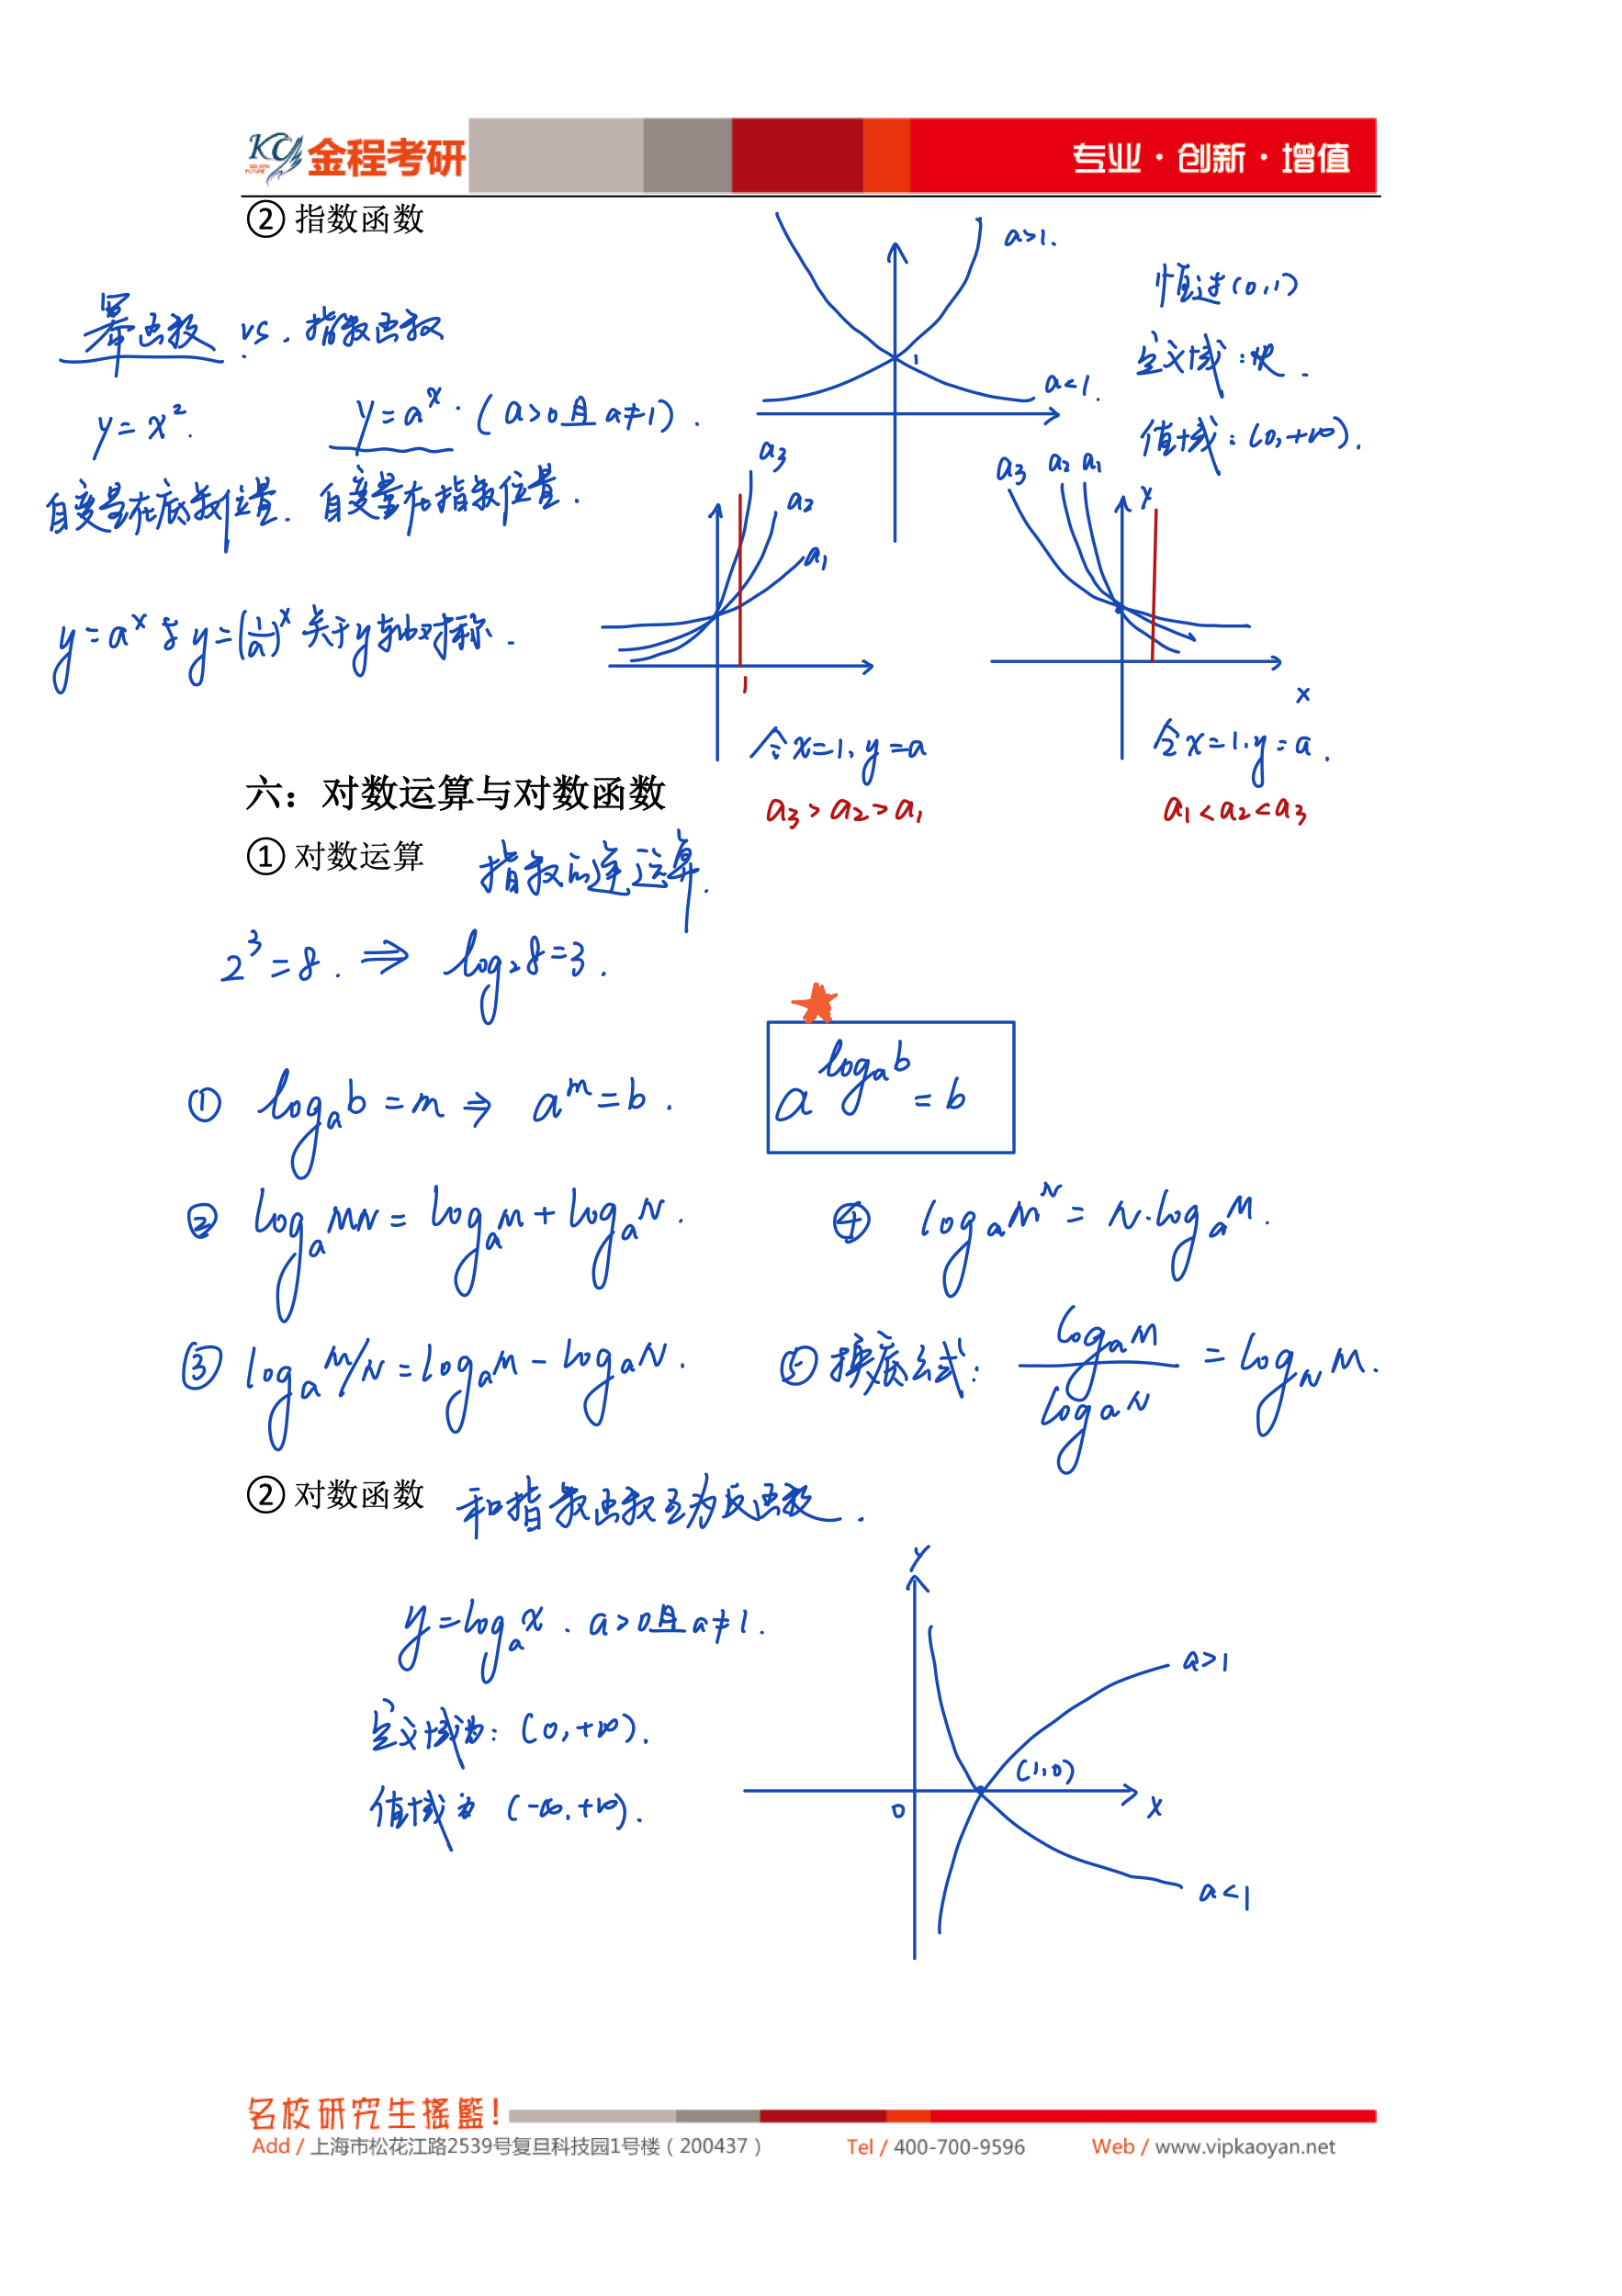 KC 金程考研
GOLDEN FUTURE
专业·创新·增值
② 指数函数
幂函数 vs. 指数函数
y=x². y=aˣ. (a>0且a≠1).
自变量在底数位置. 自变量在指数位置.
y=aˣ与y=(1/a)ˣ关于y轴对称.
a>1.
1
a<1.
恒过(0,1)
定义域:R.
值域:(0,+∞).
a3
a2
a1
1
令x=1, y=a
a3>a2>a1
a3 a2 a1 y
x
令x=1, y=a.
a1<a2<a3
六：对数运算与对数函数
① 对数运算 指数的逆运算.
2³=8. ⇒ log₂8=3.
① logₐb=m ⇒ aᵐ=b. a^(logₐb)=b
② logₐMN=logₐM+logₐN. ④ logₐMᴺ=N·logₐM.
③ logₐM/N=logₐM-logₐN. ⑤ 换底公式: logₐM/logₐN=log_N M.
② 对数函数 和指数函数互为反函数.
y=logₐx. a>0且a≠1.
定义域为:(0,+∞).
值域为(-∞,+∞).
y
a>1
(1,0)
0 x
a<1
名校研究生摇籃!
Add / 上海市松花江路2539号复旦科技园1号楼（200437） Tel / 400-700-9596 Web / www.vipkaoyan.net